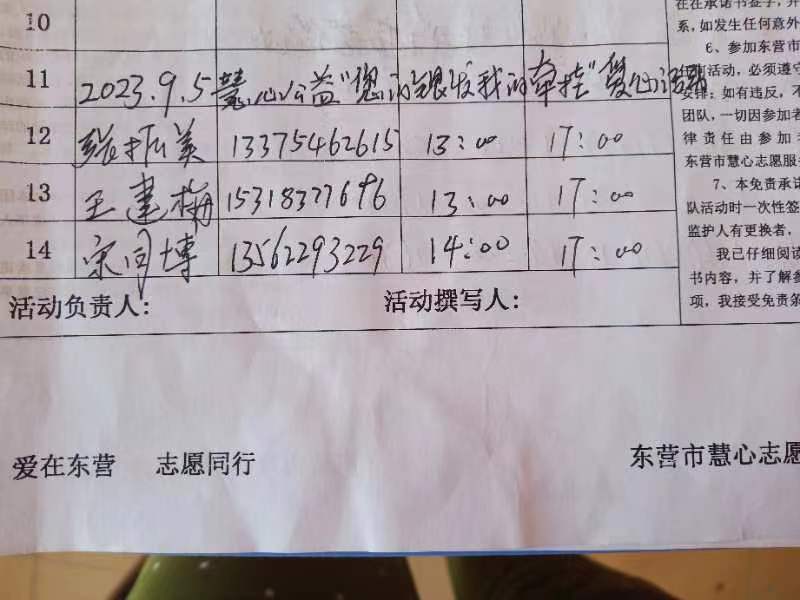 在在承诺书签字，并
系，如发生任何意外
6、参加东营市
活动，必须遵守
安排；如有违反，不
团队，一切因参加者
律责任由参加
东营市慧心志愿服
7、本免责承诺
队活动时一次性签
监护人有更换者，
我已仔细阅读
书内容，并了解参
项，我接受免责条
10
11 2023.9.5慧心公益"您的银发我的牵挂"爱心活动
12 张振美 13375462615 13:00 17:00
13 王建梅 15318377696 13:00 17:00
14 宋同博 13562293229 14:00 17:00
活动负责人: 活动撰写人:
爱在东营 志愿同行 东营市慧心志愿